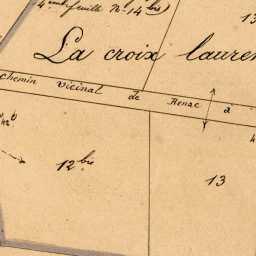 4ème feuille N° 14 bis)
13
La croix lauren
Chemin Vicinal de Renac à
12 bis
13
4